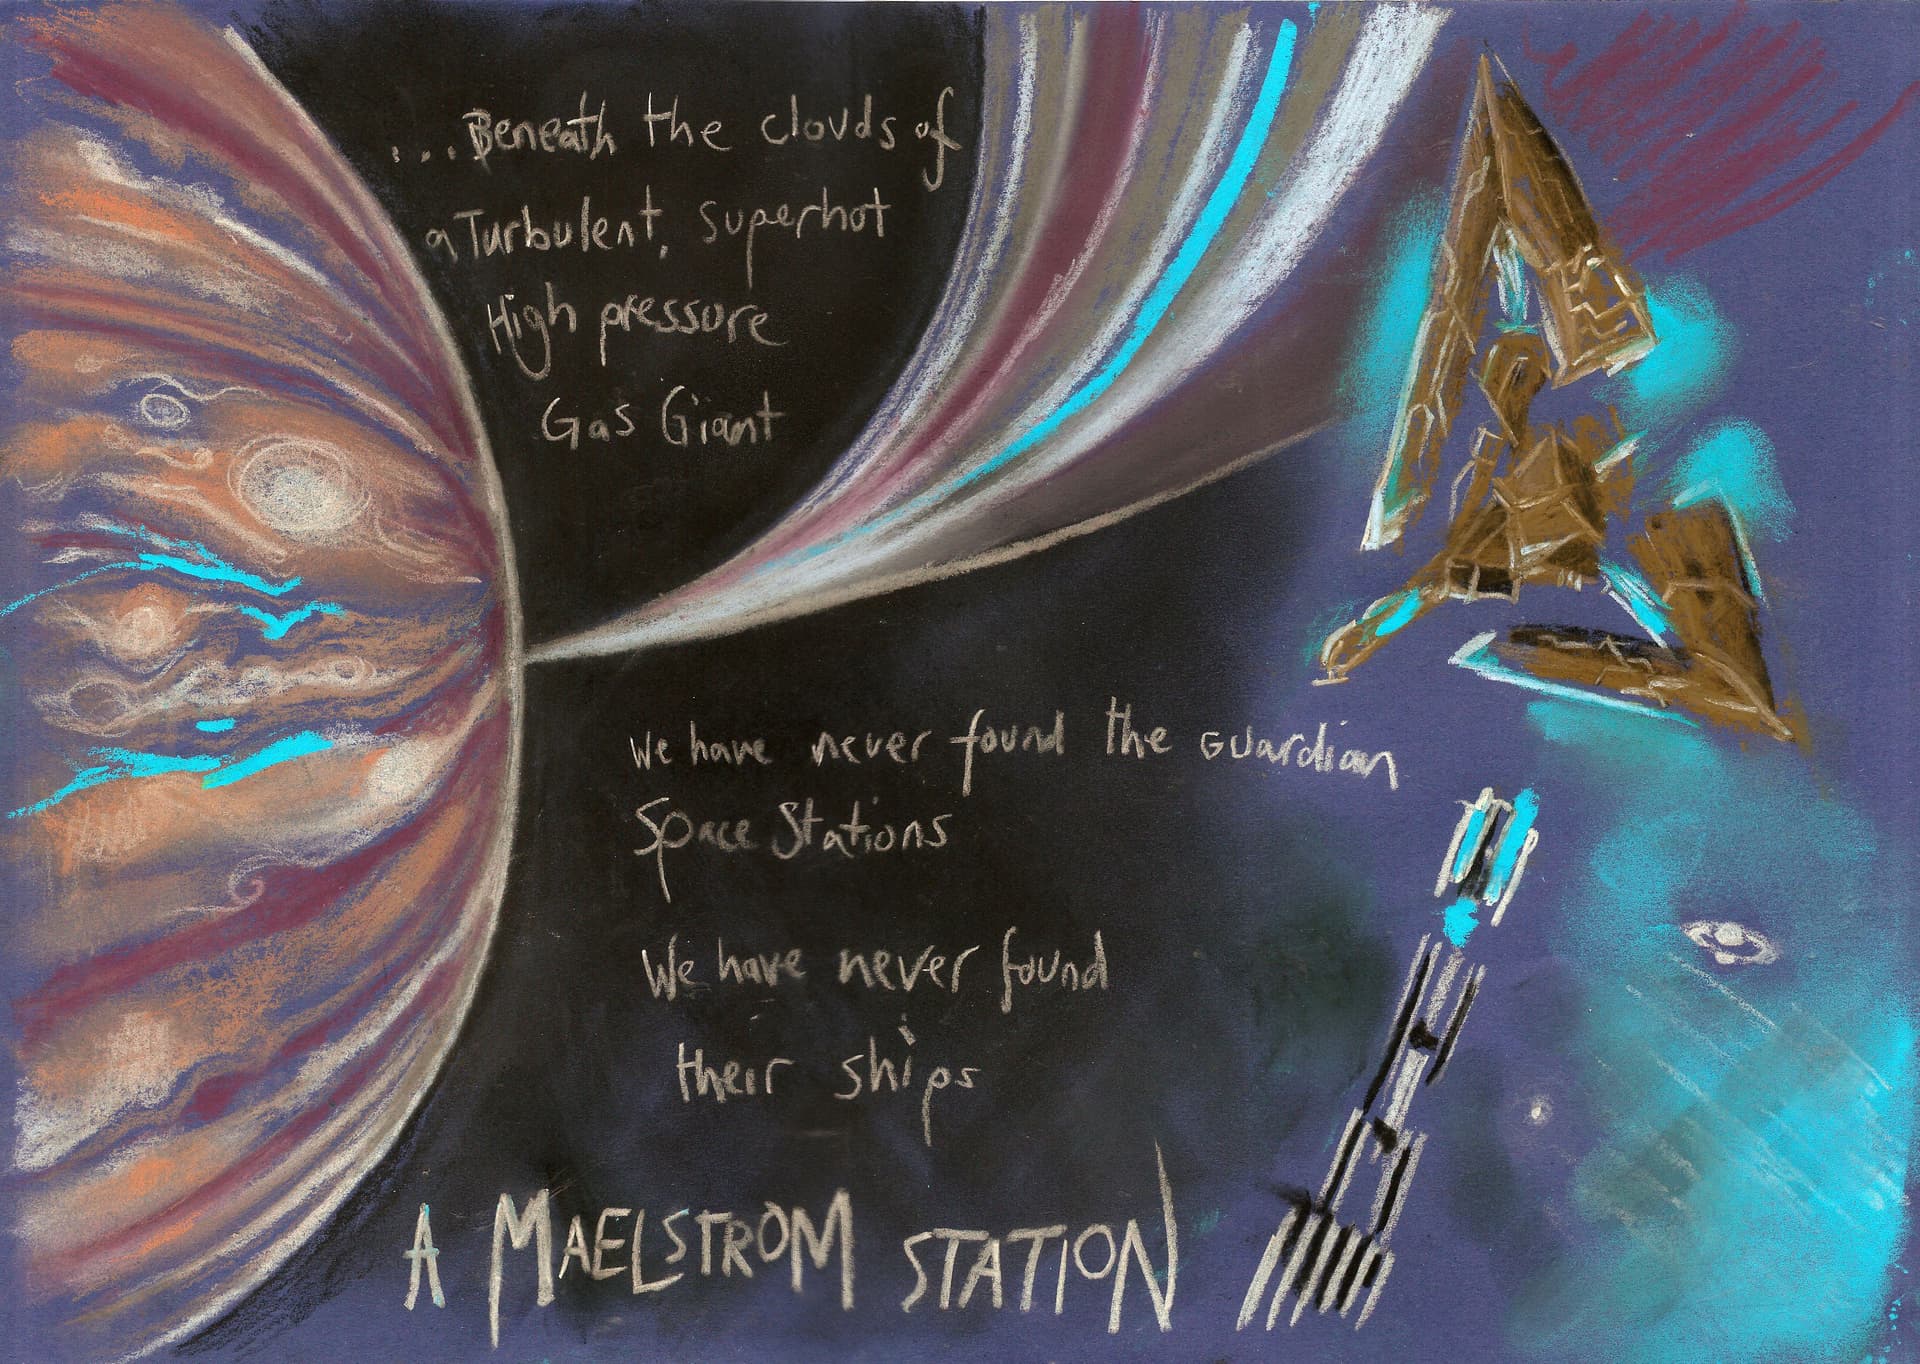 ...Beneath the clouds of
a Turbulent, superhot
High pressure
Gas Giant
We have never found the Guardian
Space Stations
We have never found
their ships
A MAELSTROM STATION